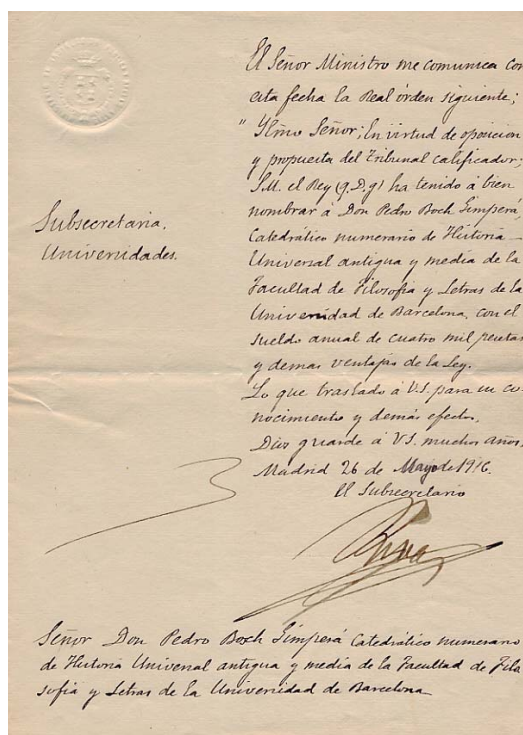 El Señor Ministro me comunica con
esta fecha la Real orden siguiente;
" Ylmo Señor; En virtud de oposicion
y propuesta del Tribunal calificador;
S.M. el Rey (q.D.g) ha tenido á bien
nombrar á Don Pedro Boch Gimperá,
Catedrático numerario de Historia
Universal antigua y media de la
Facultad de Filosofia y Letras de la
Universidad de Barcelona, con el
sueldo anual de cuatro mil pesetas
y demas ventajas de la Ley.
Lo que traslado á V.S. para su co-
nocimiento y demás efectos.
Dios guarde á V.S. muchos años.
Madrid 26 de Mayo de 1916.
El Subsecretario
Subsecretaria.
Universidades.
Señor Don Pedro Boch Gimperá Catedrático numerario
de Historia Universal antigua y media de la Facultad de Filo
sofia y Letras de la Universidad de Barcelona